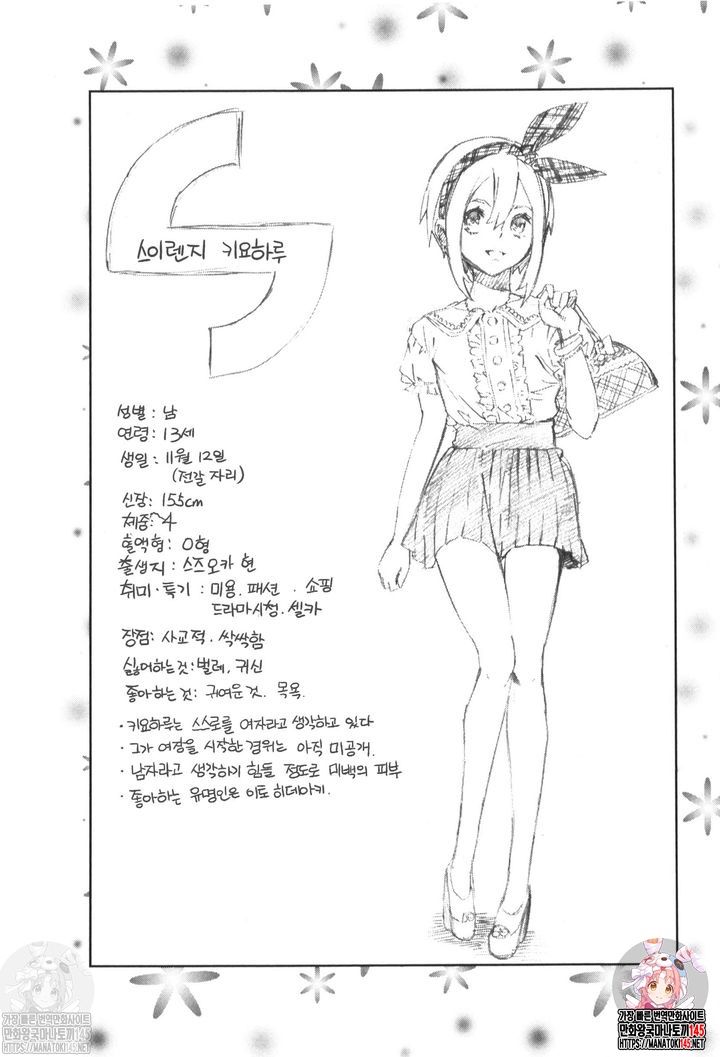 스이렌지 키요하루
성별 : 남
연령 : 13세
생일 : 11월 12일
(전갈 자리)
신장 : 155cm
체중 : ~4
혈액형 : O형
출생지 : 스즈오카 현
취미·특기 : 미용. 패션 . 쇼핑
드라마시청. 셀카
장점 : 사교적. 싹싹함
싫어하는것 : 벌레, 귀신
좋아하는 것 : 귀여운 것. 목욕.
· 키요하루는 스스로를 여자라고 생각하고 있다
· 그가 여장을 시작한 경위는 아직 미공개.
· 남자라고 생각하기 힘들 정도로 미백의 피부
· 좋아하는 유명인은 이토 히데아키.
가장 빠른 번역만화사이트
만화왕국마나토끼145
HTTPS://MANATOKI145.NET
가장 빠른 번역만화사이트
만화왕국마나토끼145
HTTPS://MANATOKI145.NET